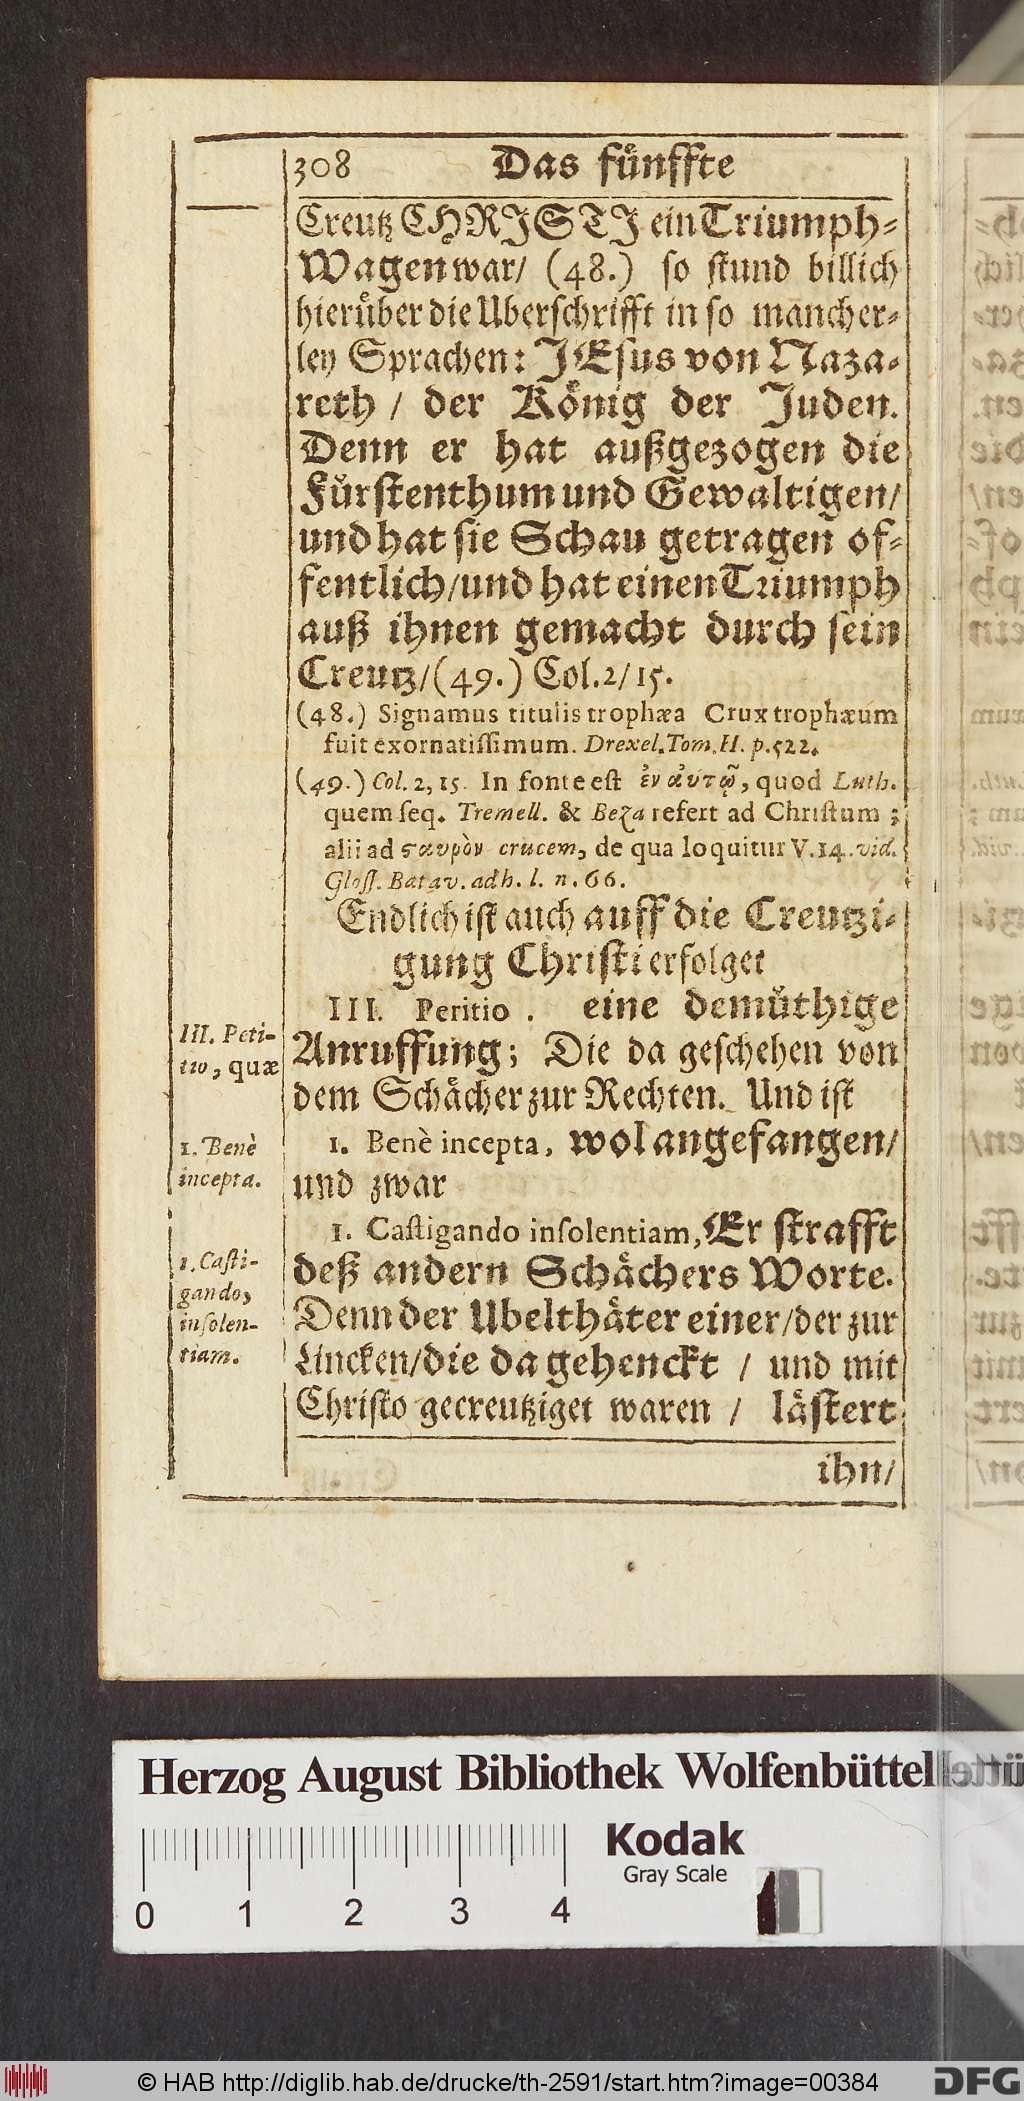 308 Das fünffte
Creutz CHRISTI ein Triumph-
Wagen war/ (48.) so stund billich
hierüber die Uberschrifft in so mancher-
ley Sprachen: JEsus von Naza-
reth / der König der Juden.
Denn er hat außgezogen die
Fürstenthum und Gewaltigen/
und hat sie Schau getragen of-
fentlich/und hat einen Triumph
auß ihnen gemacht durch sein
Creutz/(49.) Col.2/15.
(48.) Signamus titulis trophæa Crux trophæum
fuit exornatissimum. Drexel. Tom. II. p.522.
(49.) Col. 2, 15. In fonte est ἐν αὐτῷ, quod Luth.
quem seq. Tremell. & Beza refert ad Christum ;
alii ad ϛαυρὸν crucem, de qua loquitur V. 14. vid.
Gloss. Batav. adh. l. n. 66.
Endlich ist auch auff die Creutzi-
gung Christi erfolget
III. Petitio . eine demüthige
Anruffung; Die da geschehen von
dem Schächer zur Rechten. Und ist
1. Benè incepta, wol angefangen/
und zwar
1. Castigando insolentiam, Er strafft
deß andern Schächers Worte.
Denn der Ubelthäter einer/der zur
Lincken/die da gehenckt / und mit
Christo gecreutziget waren / lästert
ihn/
III. Peti-
tio, quæ
1. Benè
incepta.
1. Casti-
gando,
insolen-
tiam.
Herzog August Bibliothek Wolfenbüttel
0 1 2 3 4
Kodak
Gray Scale
© HAB http://diglib.hab.de/drucke/th-2591/start.htm?image=00384
DFG